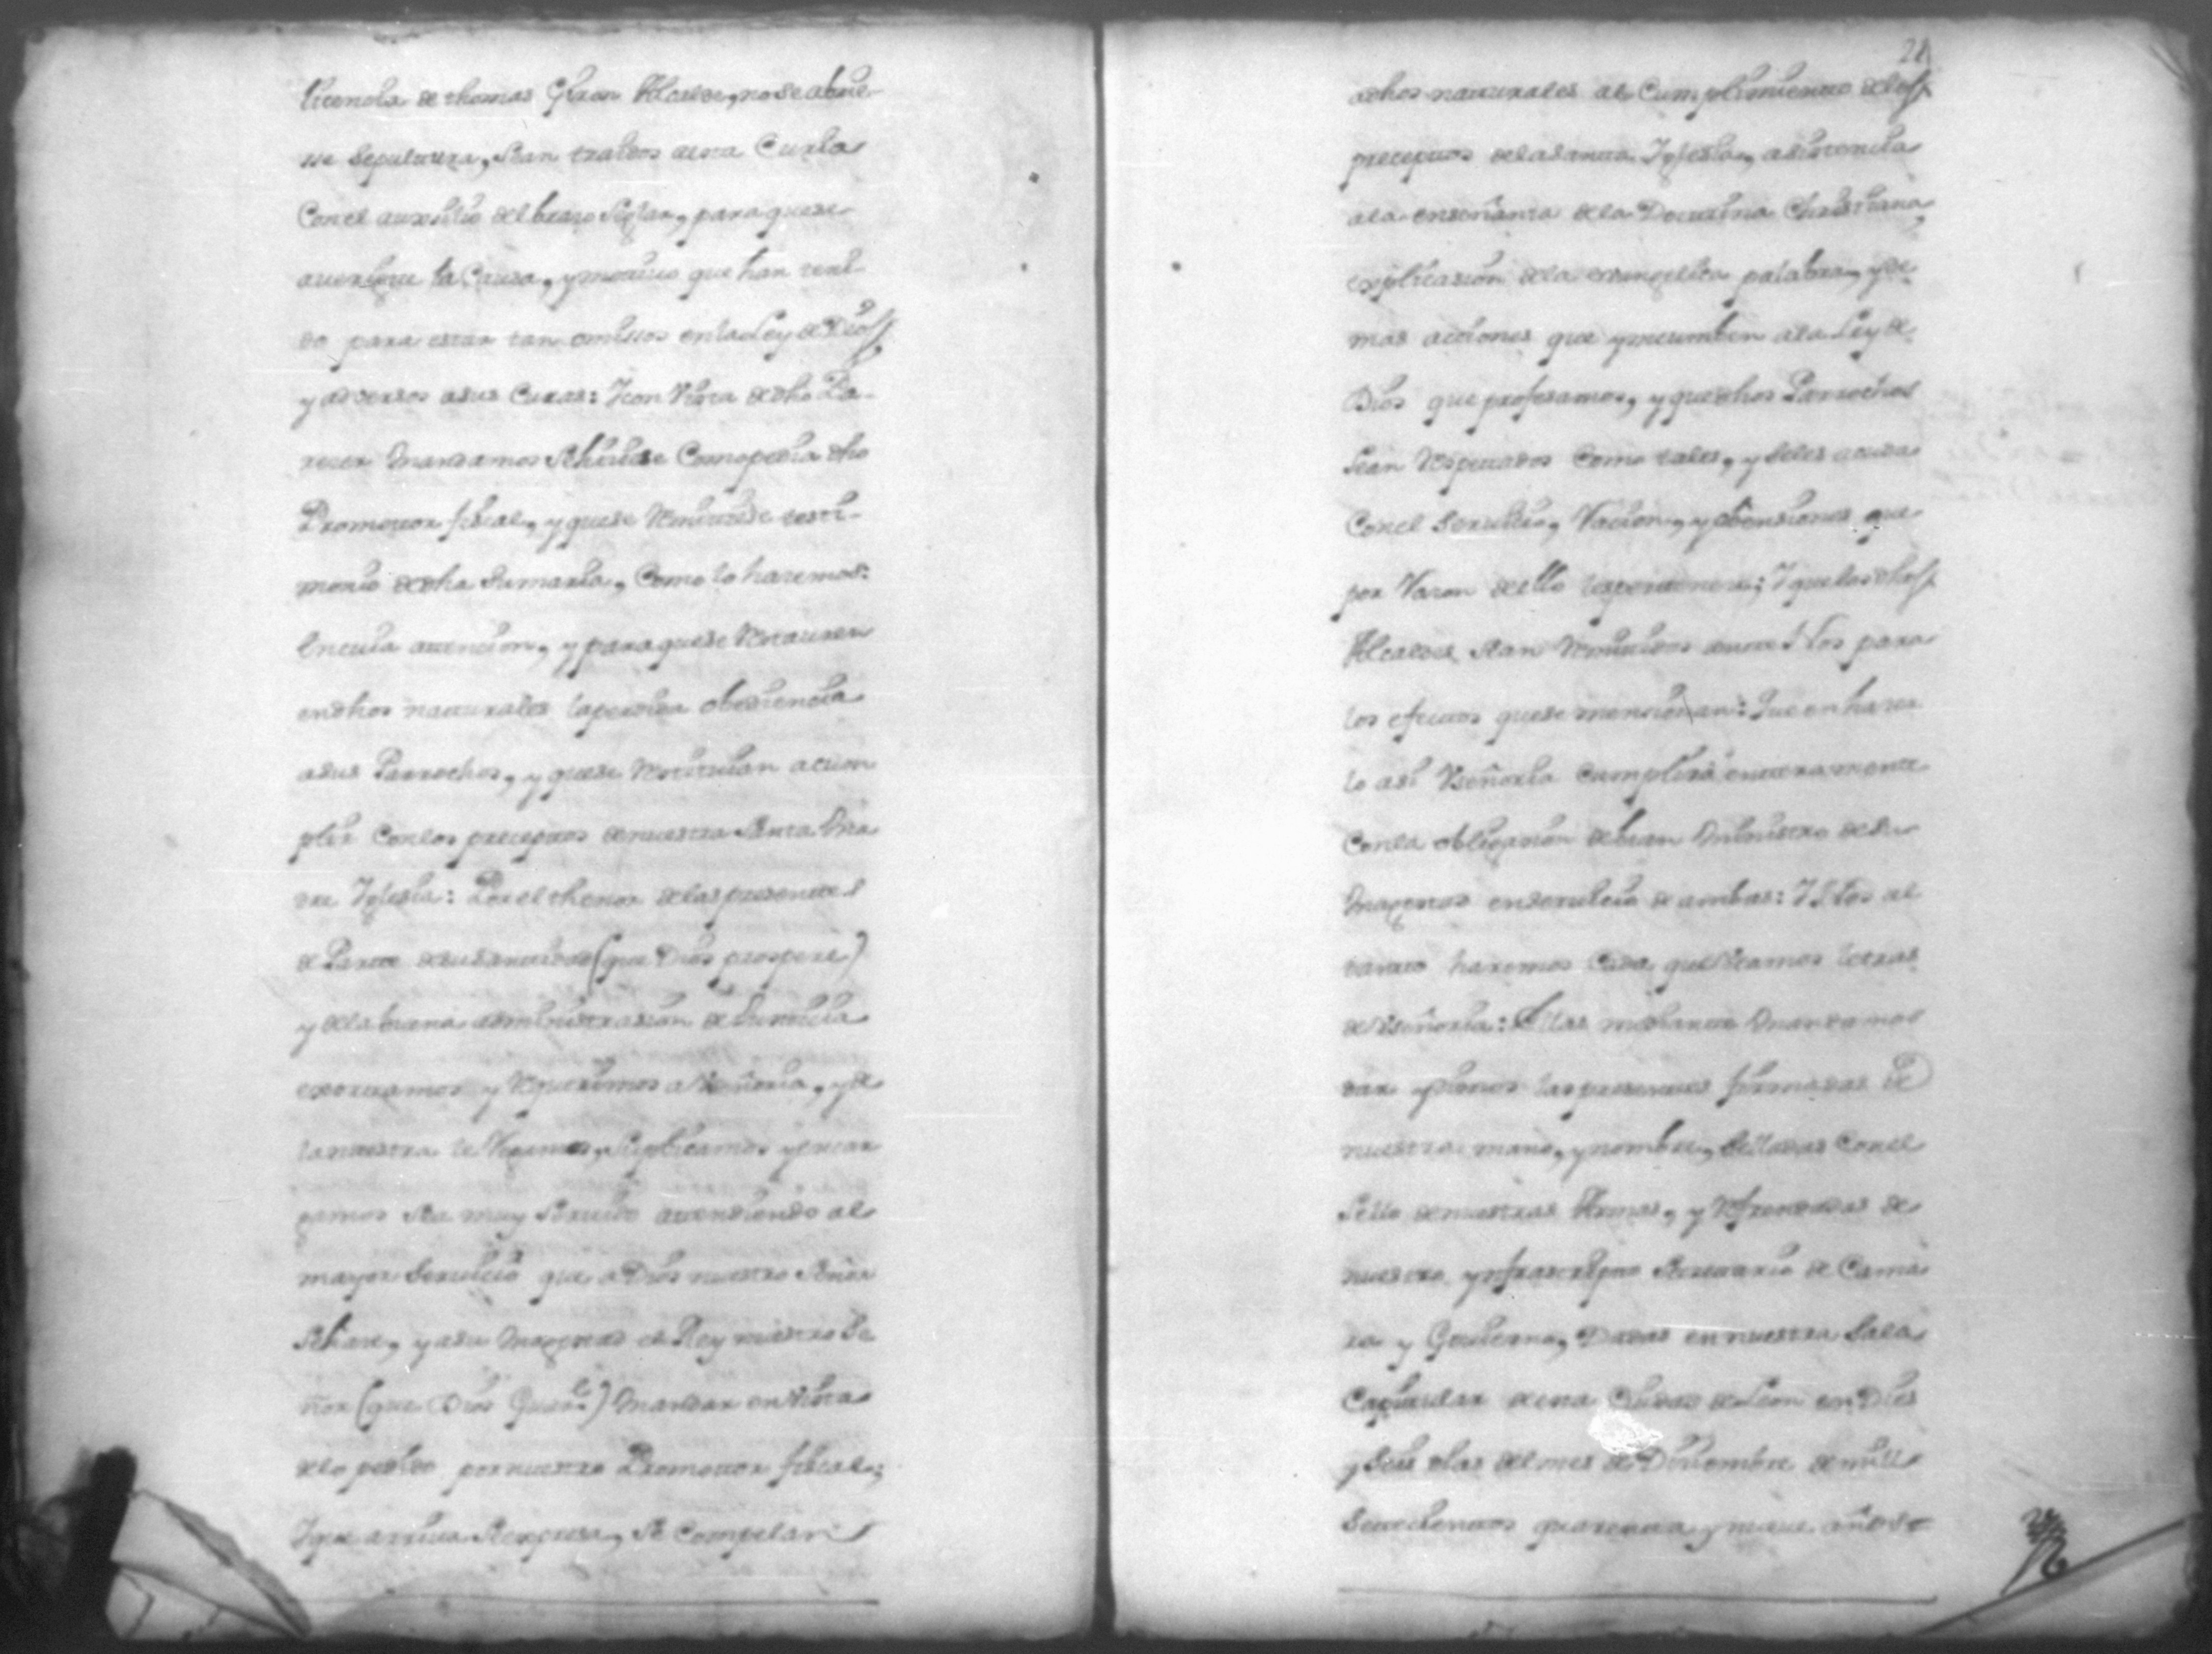 licencia de thomas Giron Alcalde, no se abrie-
sse sepultura, sean traidos a esta Curia
Con el auxilio del brazo Seglar, para que se
averigue la Causa, y motivo que han teni-
do para estar tan omissos en la Ley de Dios
y adversos a sus Curas: Y con Vista de dho Pa-
recer mandamos Se hiciese Como pedia dho
Promottor fiscal, y que se Remitiese testi-
monio de dha Sumaria, Como lo haremos:
En cuia attencion, y para que se Restauren
en dhos natturales la perdida obediencia
a sus Parrochos, y que se Reduzcan a cum
plir Con los preceptos de nuestra Santa Ma
dre Yglesia: Por el thenor de las presenttes
de Parte de su santidad (que Dios prospere)
y de la buena administrasion de Justicia
exortamos y Requerimos a Vseñoria, y de
la nuestra le Rogamos, Suplicamos y encar
gamos Sea muy Servido attendiendo al
mayor Servicio que a Dios nuestro Señor
Se hace, y a su Magestad el Rey nuestro Se
ñor (que Dios Guarde) mandar en Vista
de lo pedido por nuestro Promottor fiscal;
Y que arriva Se expresa, Se Compelan
a dhos natturales al Cumplimiento de los
preceptos de la santa Yglesia, asistencia
a la enseñanza de la Doctrina Christiana,
explicasion de la evangelica palabra, y de
mas acciones que yncumben a la Ley de
Dios que profesamos, y que dhos Parrochos
Sean Respetados Como tales, y Se les acuda
Con el Servicio, Racion, y obensiones que
por Razon de ello les pertenece; Y que los dhos
Alcaldes Sean Remitidos ante Nos para
los efectos que se mencionan: Que en hacer
lo asi Vseñoria Cumplira enteramente
Con la obligacion de buen Ministro de Su
Magestad en servicio de ambas: Y Nos al
tanto haremos Cada que Veamos letras
de Vseñoria: Ellas mediante mandamos
dar y dimos las presentes firmadas de
nuestra mano, y nombre, Selladas Con el
Sello de nuestras Armas, y Refrendadas de
nuestro ynfrascripto Secretario de Cama
ra y Govierno, Dadas en nuestra Sala
Capitular de esta Ciudad de Leon en Dies
y Seis dias del mes de Diciembre de mill
Settecientos quarenta y nueve años